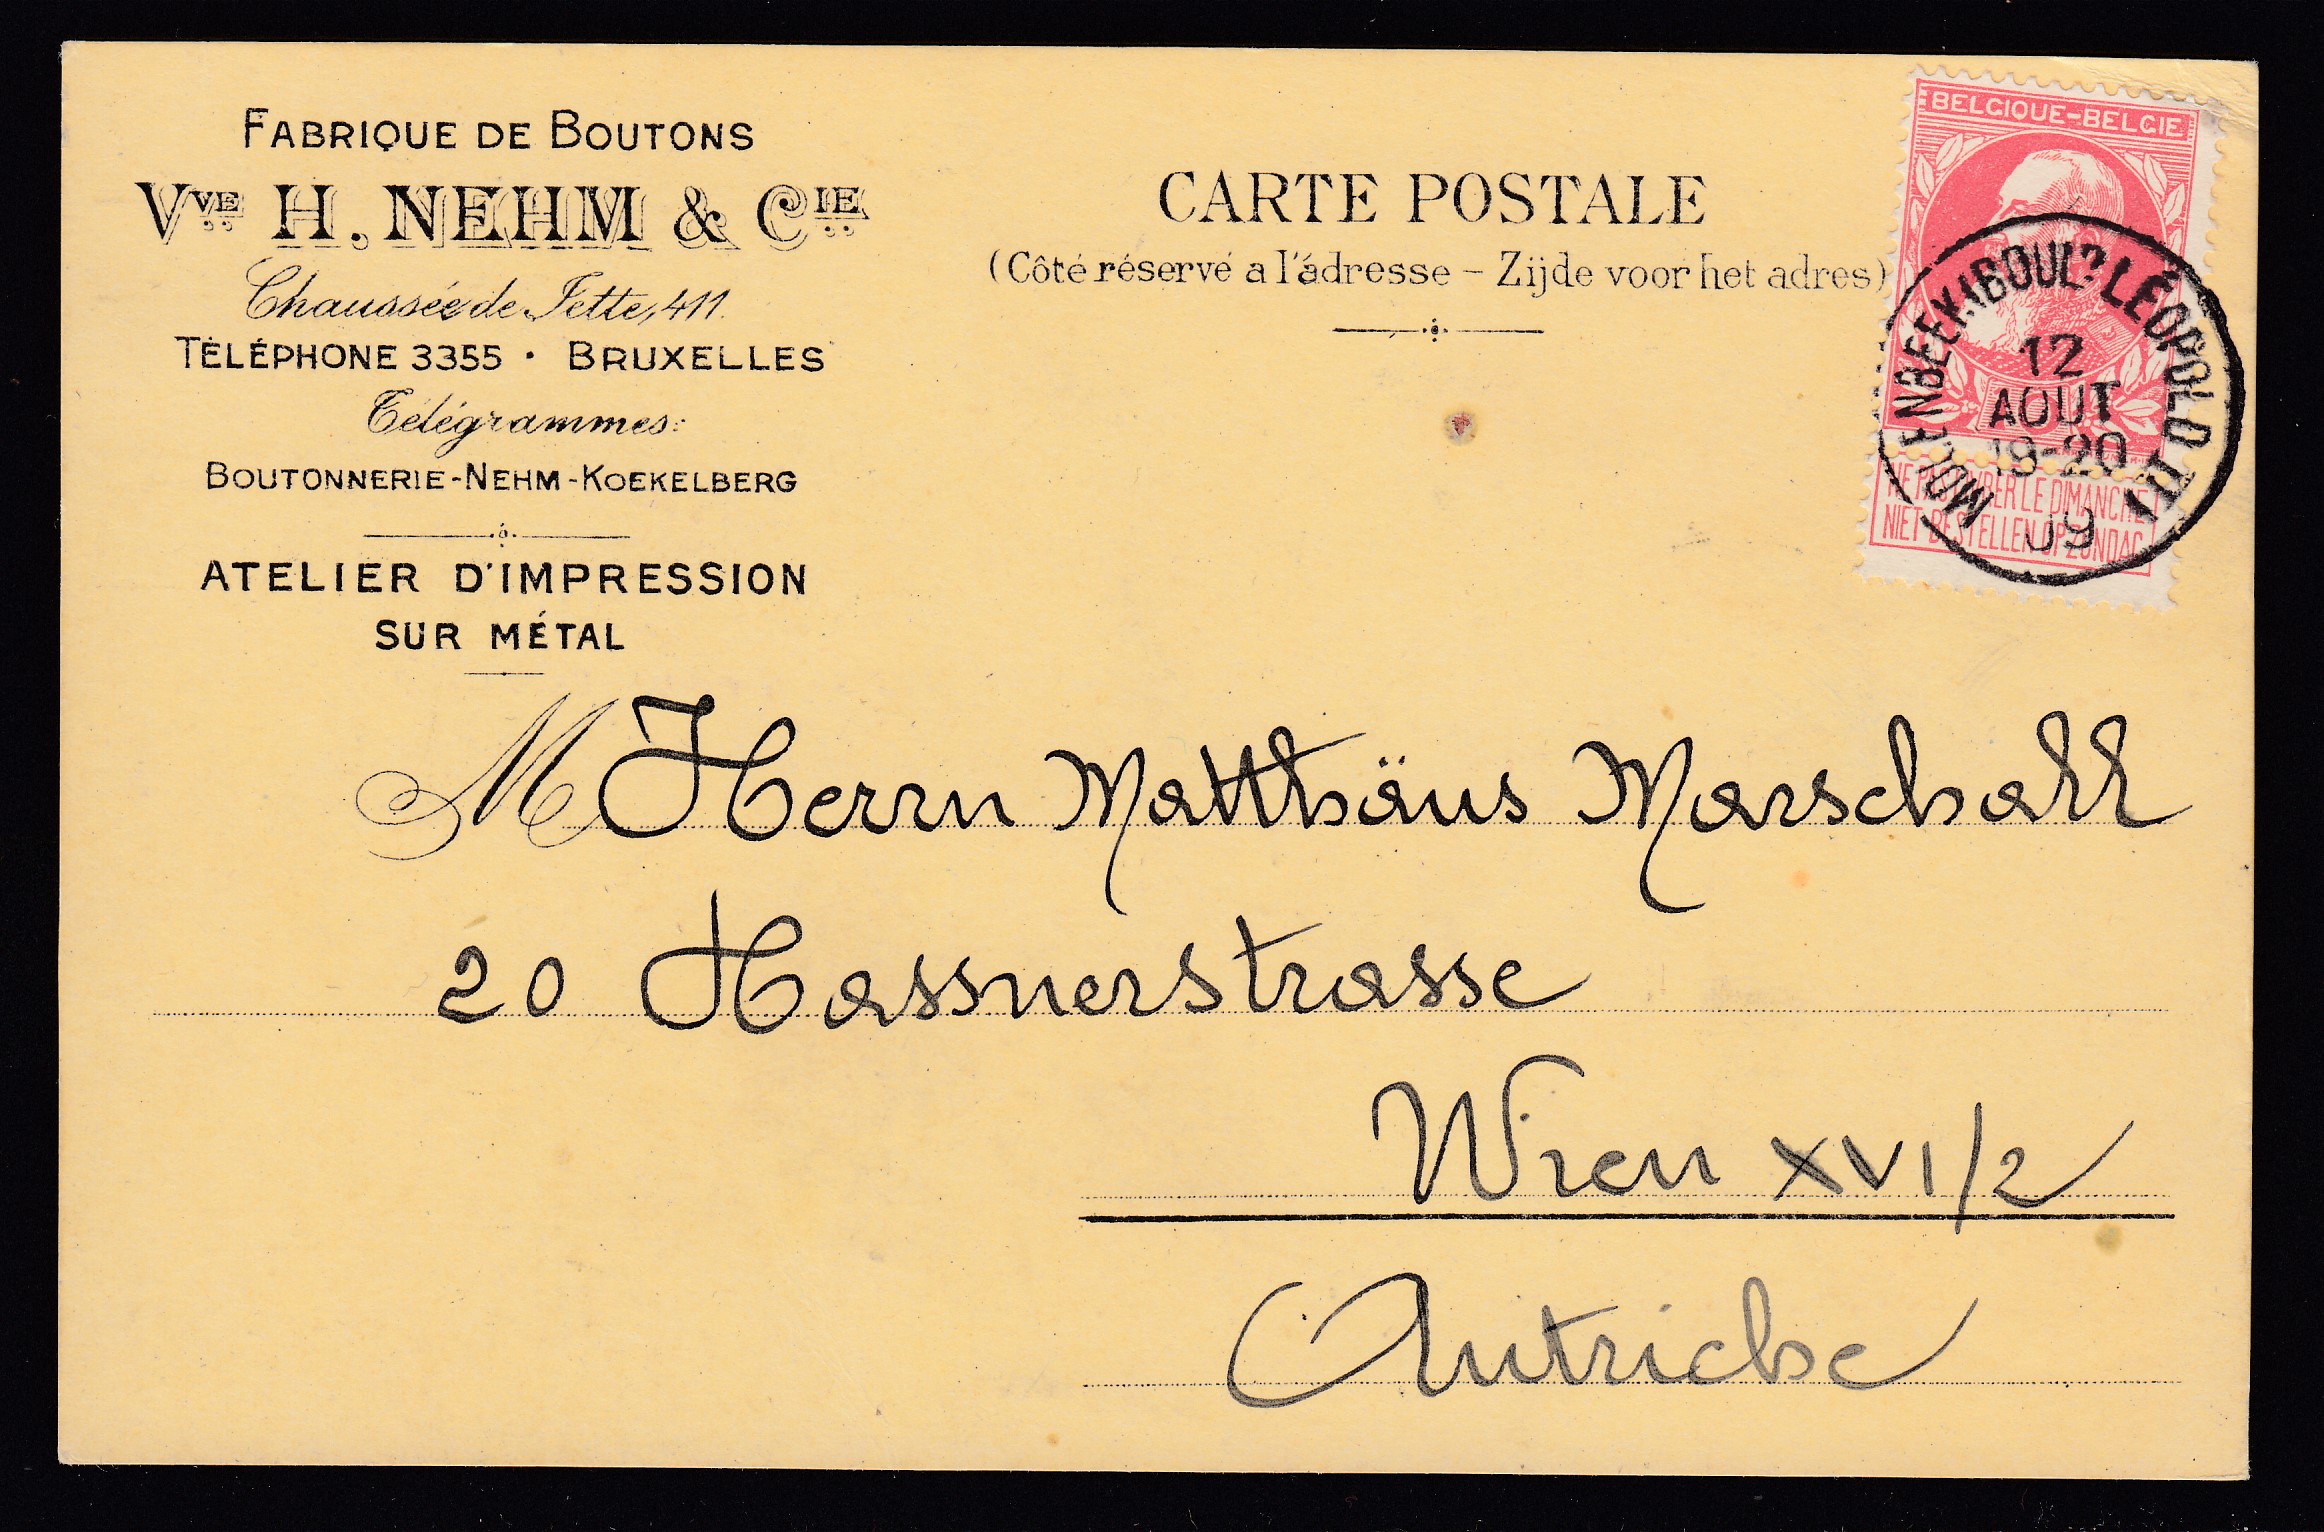 FABRIQUE DE BOUTONS
VVE H. NEHM & CIE
Chaussée de Jette, 411.
TÉLÉPHONE 3355 · BRUXELLES
Télégrammes:
BOUTONNERIE-NEHM-KOEKELBERG
ATELIER D'IMPRESSION
SUR MÉTAL
CARTE POSTALE
(Côté réservé a l'ádresse - Zijde voor het adres)
BELGIQUE-BELGIE
NE PAS LIVRER LE DIMANCHE
NIET BESTELLEN OP ZONDAG
MOLENBEEK (BOULD LÉOPOLD II)
12
AOUT
19-20
09
M Herrn Matthäus Marschall
20 Hassnerstrasse
Wien XVI/2
Autriche